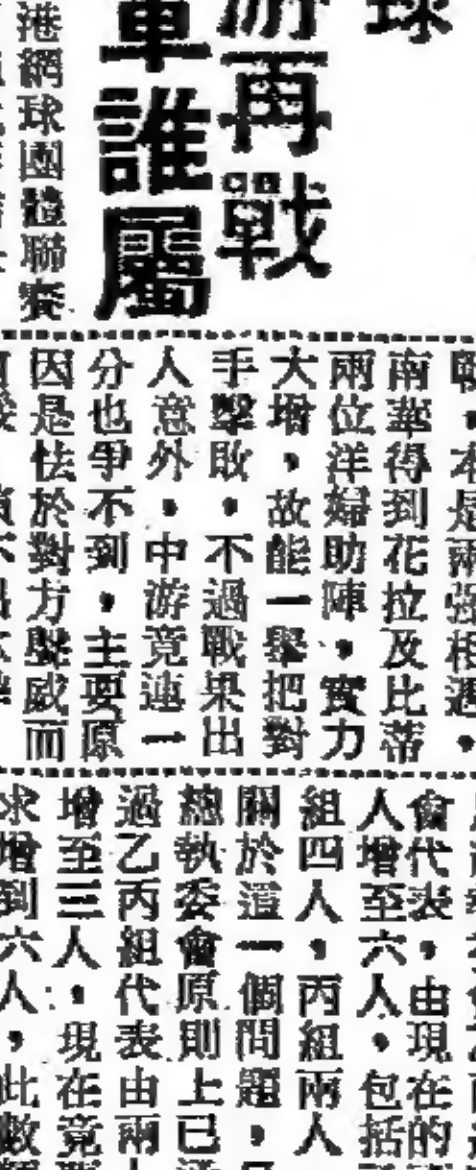 球
游再戰
軍誰屬
港網球團體聯賽
本是兩強相遇。
南華得到花拉及比蒂
兩位洋婦助陣，實力
大增，故能一舉把對
手擊敗。不過戰果出
人意外。中游竟連一
分也爭不到，主要原
因是怯於對方聲威而
會代表，由現在的
人增至六人。包括
組四人，丙組兩人
關於這一個問題，
總執委會原則上已
過乙丙組代表由兩
增至三人，現在竟
求增到六人，此數